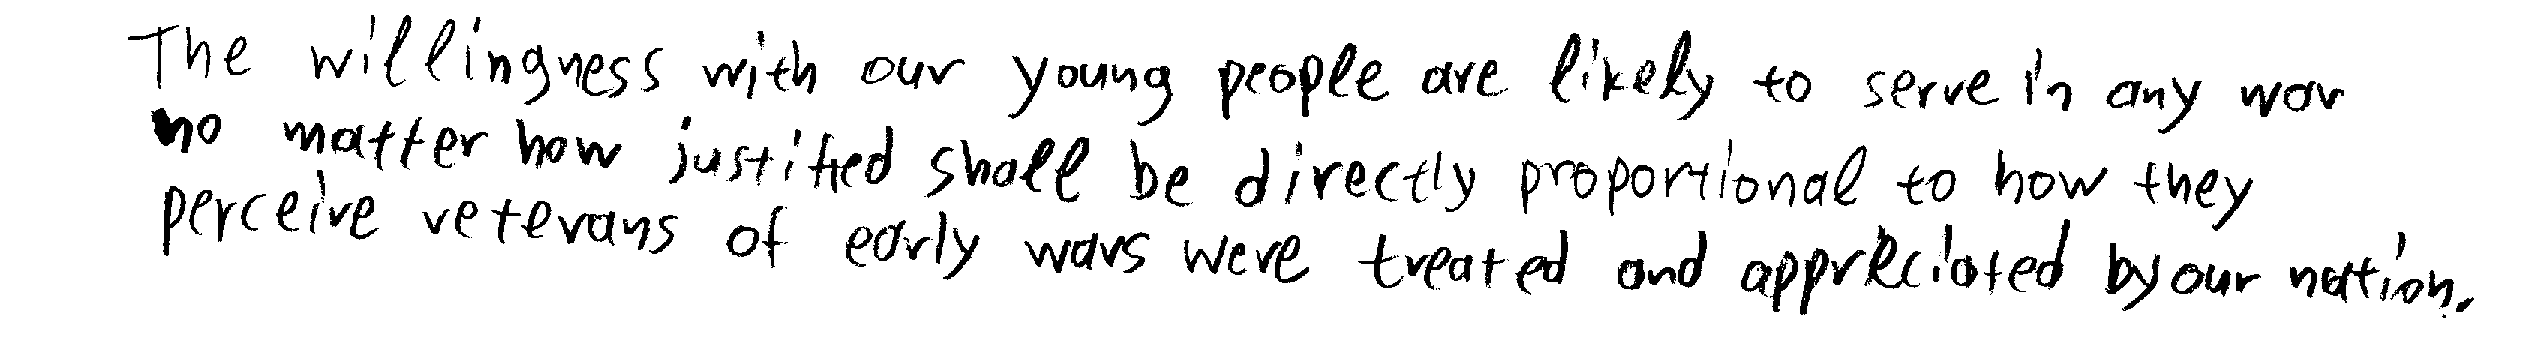 The willingness with our young people are likely to serve in any war
no matter how justified shall be directly proportional to how they
perceive veterans of early wars were treated and appreciated by our nation.